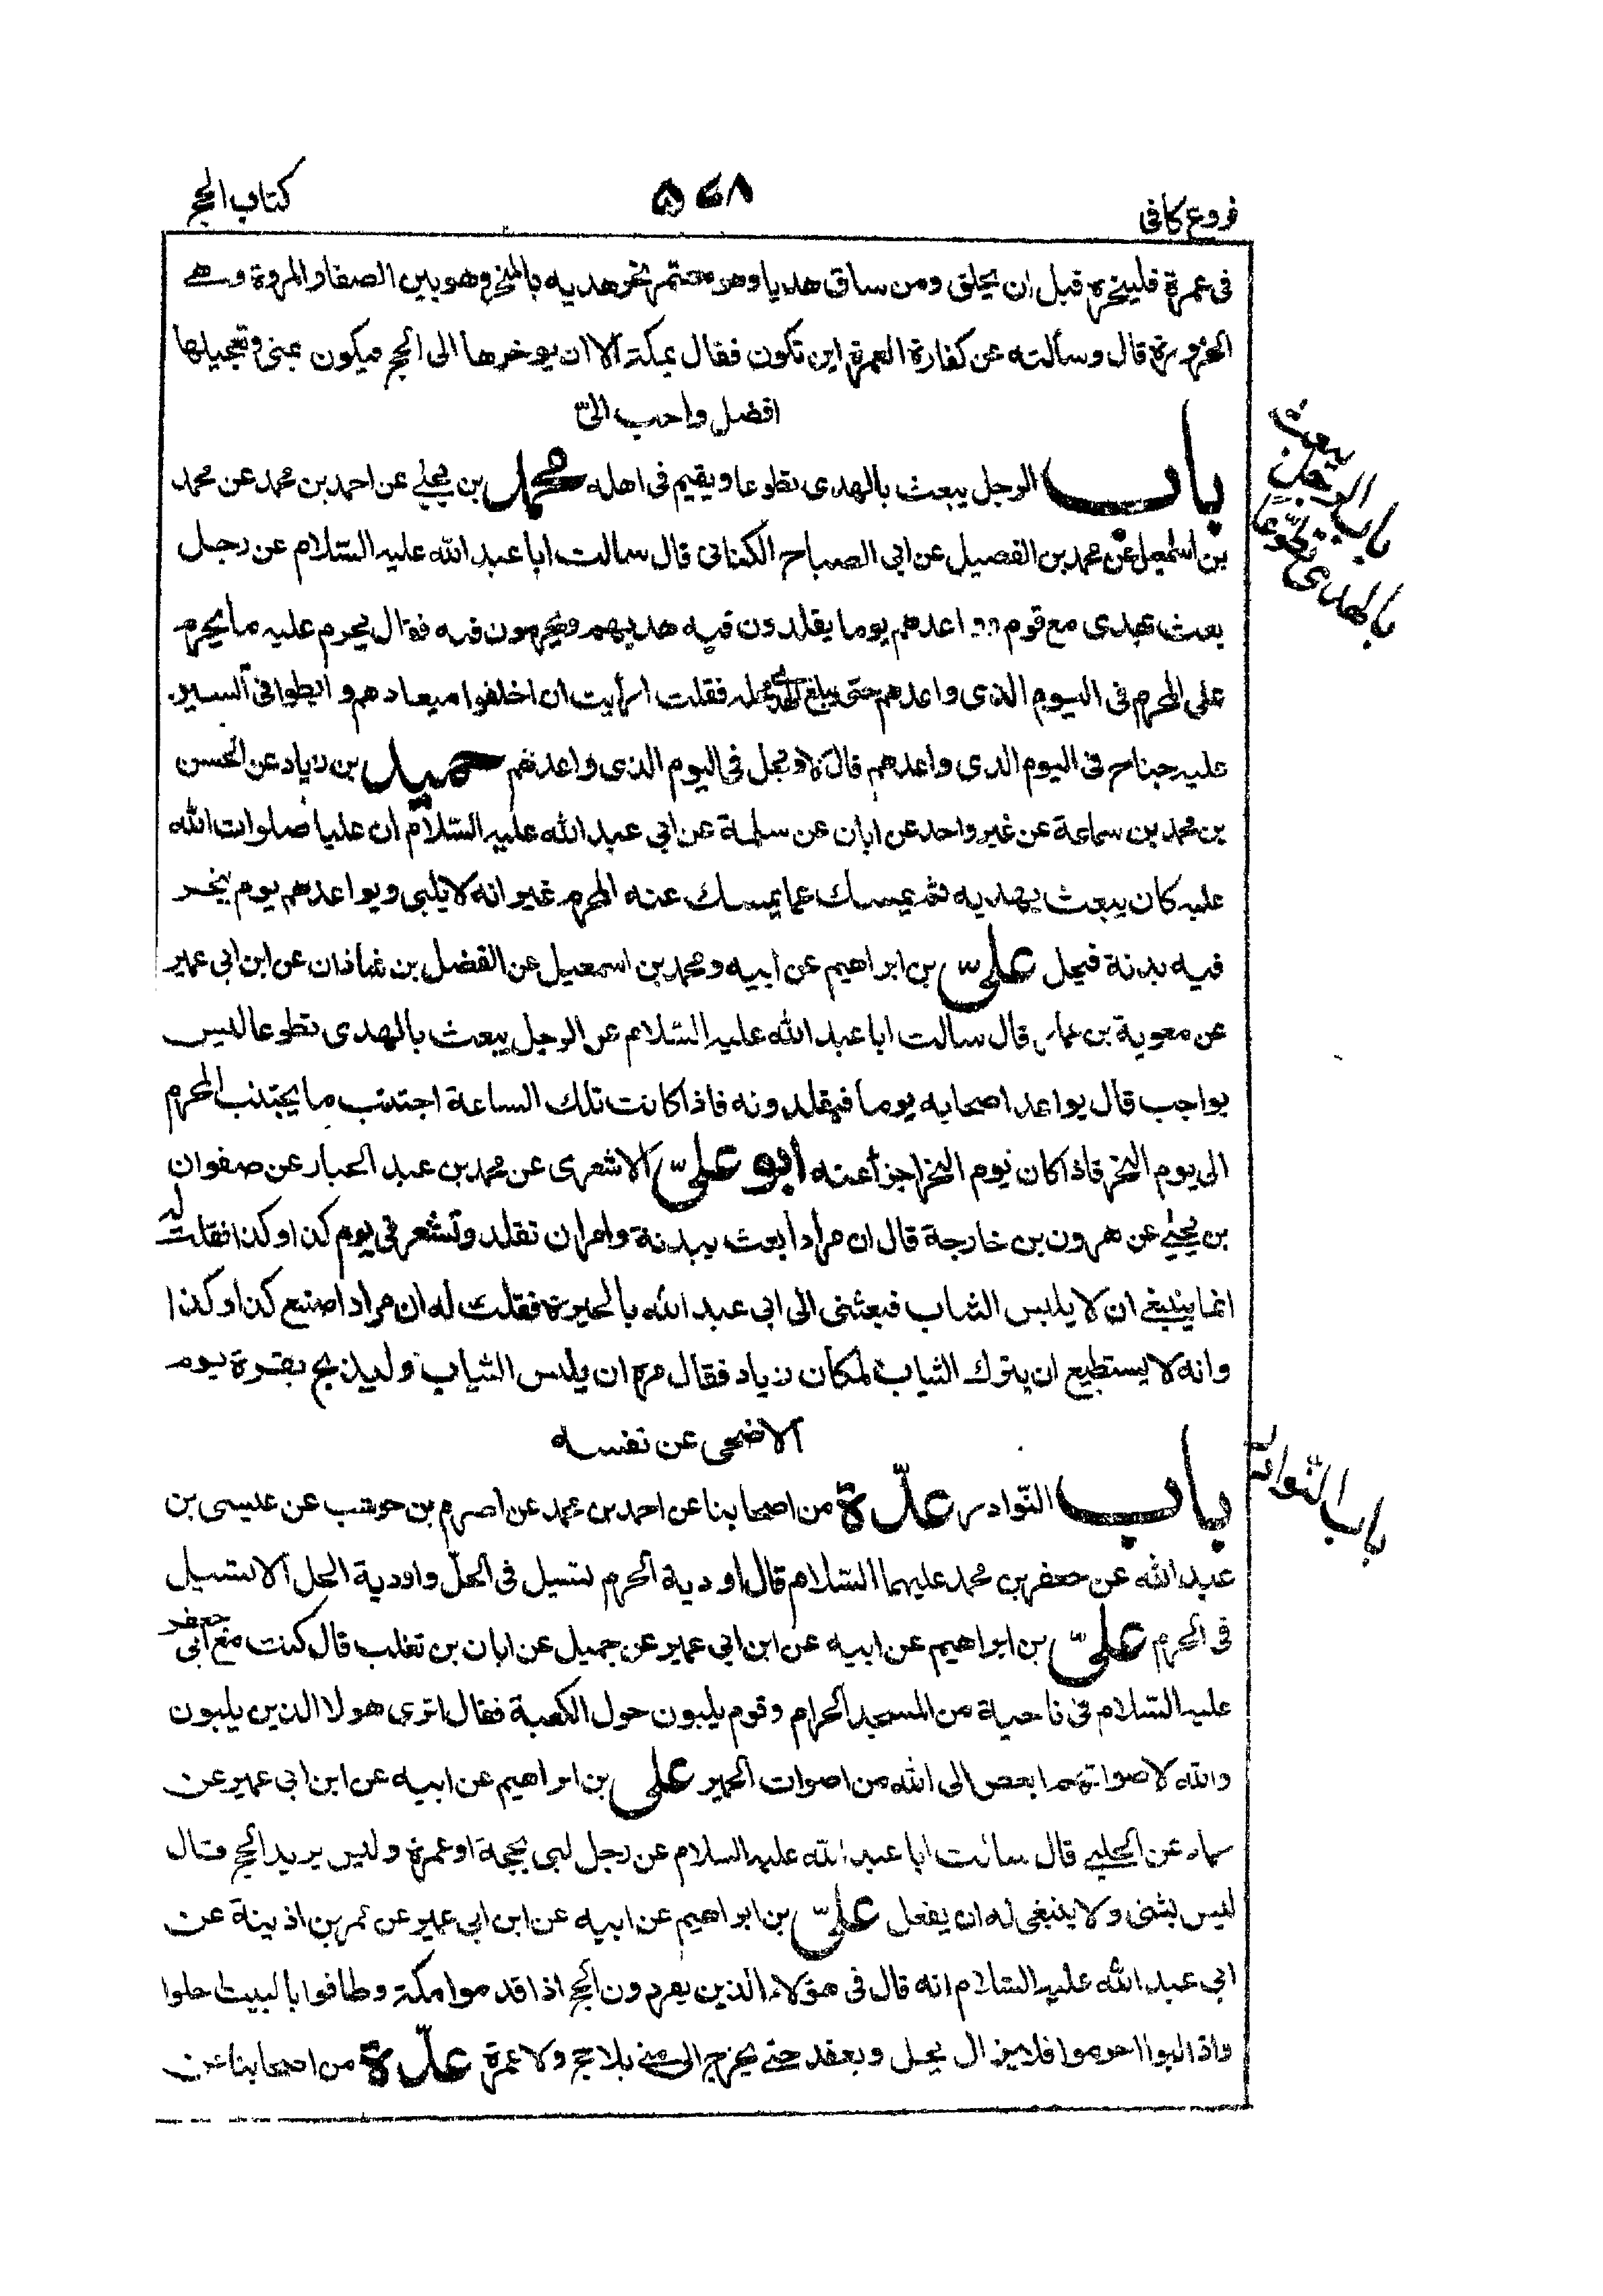 فروع كافى
۵۶۸
كتاب الحج
فى عمرة فلينحره قبل ان يحلق ومن ساق هديا وهو معتمر نحر هديه بالمنحر وهو بين الصفا والمروة وهى
الحزورة قال وسألته عن كفارة العمرة اين تكون فقال بمكة الا ان يوخرها الى الحج فيكون بمنى وتعجيلها
افضل واحب الىّ
باب الرجل يبعث بالهدى تطوعا ويقيم فى اهله محمد بن يحيى عن احمد بن محمد عن محمد
بن اسمعيل عن محمد بن الفضيل عن ابى الصباح الكنانى قال سالت ابا عبد الله عليه السّلام عن رجل
بعث بهدى مع قوم واعدهم يوما يقلدون فيه هديهم ويحرمون فيه فقال يحرم عليه ما يحرم
على المحرم فى اليوم الذى واعدهم حتى يبلغ الهدى محله فقلت ارأيت ان اخلفوا ميعادهم وابطوا فى السير
عليه جناح فى اليوم الذى واعدهم قال لا ويحل فى اليوم الذى واعدهم حميد بن زياد عن الحسن
بن محمد بن سماعة عن غير واحد عن ابان عن سلمة عن ابى عبد الله عليه السّلام ان عليا صلوات الله
عليه كان يبعث بهديه ثم يمسك عما يمسك عنه المحرم غير انه لا يلبى ويواعدهم يوم ينحر
فيه بدنة فيحل علىّ بن ابراهيم عن ابيه ومحمد بن اسمعيل عن الفضل بن شاذان عن ابن ابى عمير
عن معوية بن عمار قال سالت ابا عبد الله عليه السّلام عن الرجل يبعث بالهدى تطوعا ليس
بواجب قال يواعد اصحابه يوما فيقلدونه فاذا كانت تلك الساعة اجتنب ما يجتنب المحرم
الى يوم النحر فاذا كان يوم النحر اجزأ عنه ابو علىّ الاشعرى عن محمد بن عبد الجبار عن صفوان
بن يحيى عن هرون بن خارجة قال ان مرادا بعث ببدنة وامر ان تقلد وتشعر فى يوم كذا وكذا فقلت له
انما ينبغى ان لا يلبس الثياب فبعثنى الى ابى عبد الله بالحيرة فقلت له ان مرادا صنع كذا وكذا
وانه لا يستطيع ان يترك الثياب لمكان زياد فقال مره ان يلبس الثياب وليذبح بقرة يوم
الاضحى عن نفسه
باب النّوادر عدّة من اصحابنا عن احمد بن محمد عن اصرم بن حوشب عن عيسى بن
عبد الله عن جعفر بن محمد عليهما السّلام قال اودية الحرم تسيل فى الحلّ واودية الحل لا تسيل
فى الحرم علىّ بن ابراهيم عن ابيه عن ابن ابى عمير عن جميل عن ابان بن تغلب قال كنت مع ابى جعفر
عليه السّلام فى ناحية من المسجد الحرام وقوم يلبون حول الكعبة فقال اترى هولا الذين يلبون
والله لاصواتهم ابغض الى الله من اصوات الحمير على بن ابراهيم عن ابيه عن ابن ابى عمير عن
حماد عن الحلبى قال سالت ابا عبد الله عليه السلام عن رجل لبى بحجة او عمرة وليس يريد الحج قال
ليس بشئ ولا ينبغى له ان يفعل علىّ بن ابراهيم عن ابيه عن ابن ابى عمير عن عمر بن اذينة عن
ابى عبد الله عليه السّلام انه قال فى هؤلاء الذين يفردون الحج اذا قدموا مكة وطافوا بالبيت حلوا
واذا لبوا احرموا فلا يزال يحل ويعقد حتى يخرج الى منى بلا حج ولا عمرة عدّة من اصحابنا عن
باب الرجل يبعث
بالهدى تطوّعا
باب النّوادر